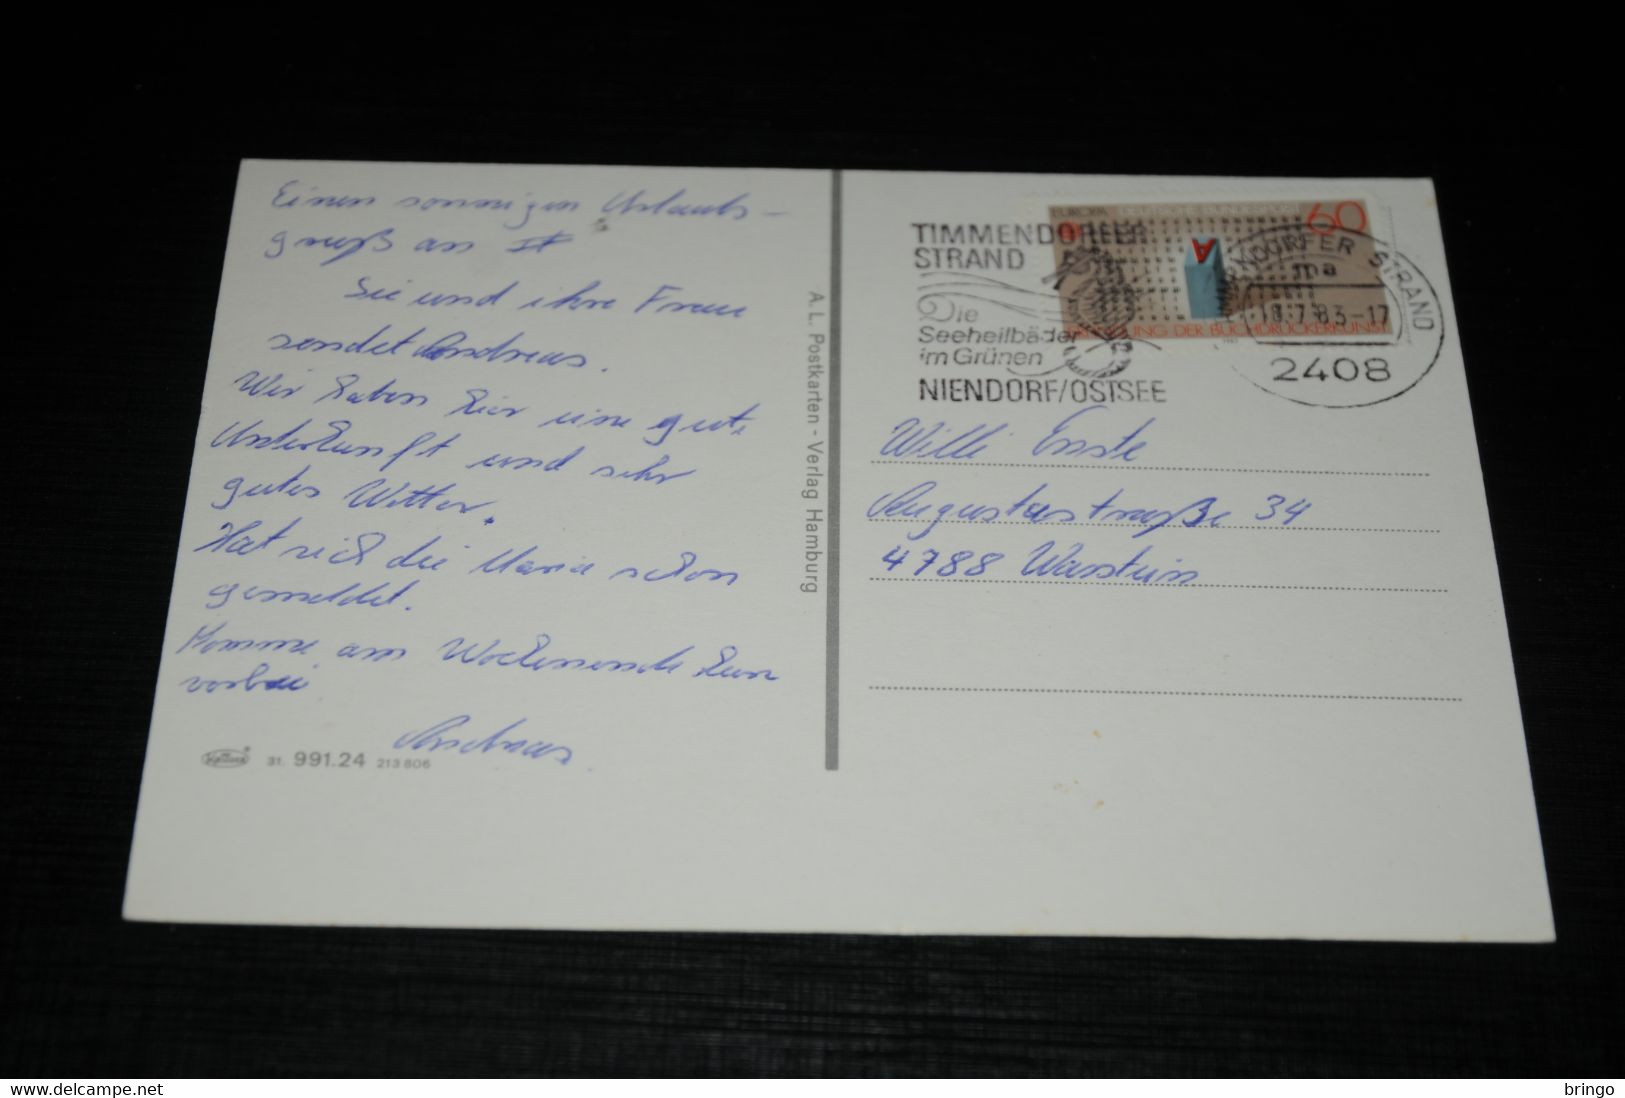 Einen sonnigen Urlaubs-
gruß an
Sie und ihre Frau
sendet Andreas.
Wir haben hier eine gute
Unterkunft und sehr
gutes Wetter.
Hat sich die Maria schon
gemeldet.
Komme am Wochenende kurz
vorbei
Andreas
31. 991.24 213 806
A. L. Postkarten - Verlag Hamburg
TIMMENDORFER
STRAND
Die
Seeheilbäder
im Grünen
NIENDORF/OSTSEE
EUROPA DEUTSCHE BUNDESPOST 60
ERFINDUNG DER BUCHDRUCKERKUNST
A
TIMMENDORFER STRAND
ma
18.7.83-17
2408
Willi Enste
Augustastraße 34
4788 Warstein
delcampe.net
bringo